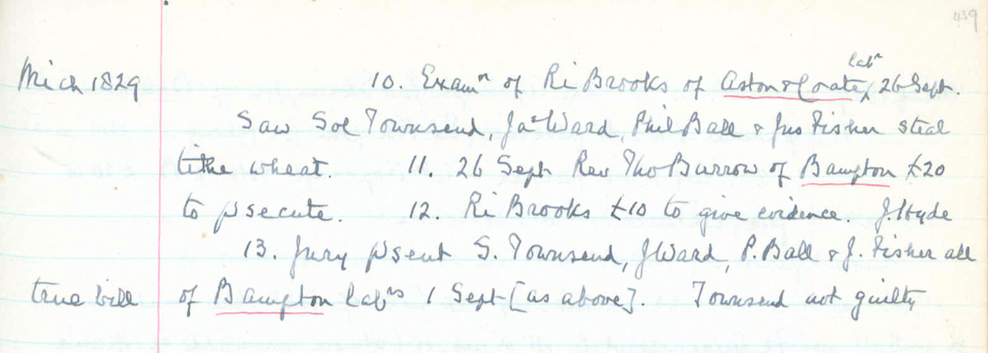 439
Mich 1829 10. Examn of Ri Brooks of Aston & Coate, labr, 26 Sept.
Saw Sol Townsend, Jas Ward, Phil Ball & Jno Fisher steal
tithe wheat. 11. 26 Sept Rev Tho Burrow of Bampton £20
to psecute. 12. Ri Brooks £10 to give evidence. J. Hyde
13. Jury psent S. Townsend, J Ward, P. Ball & J. Fisher all
true bill of Bampton labrs 1 Sept [as above]. Townsend not guilty